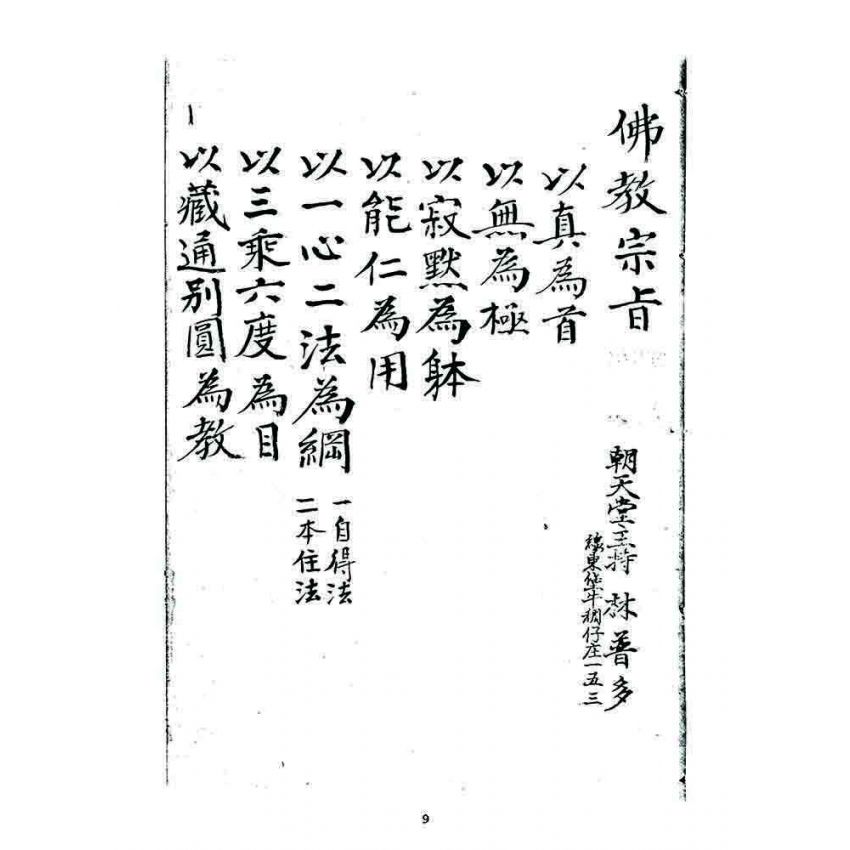 佛教宗旨
朝天堂主持 林普多
東堡牛稠仔庄一五三
以真為首
以無為極
以寂默為躰
以能仁為用
以一心二法為綱
一自得法
二本住法
以三乘六度為目
以藏通別圓為教
9